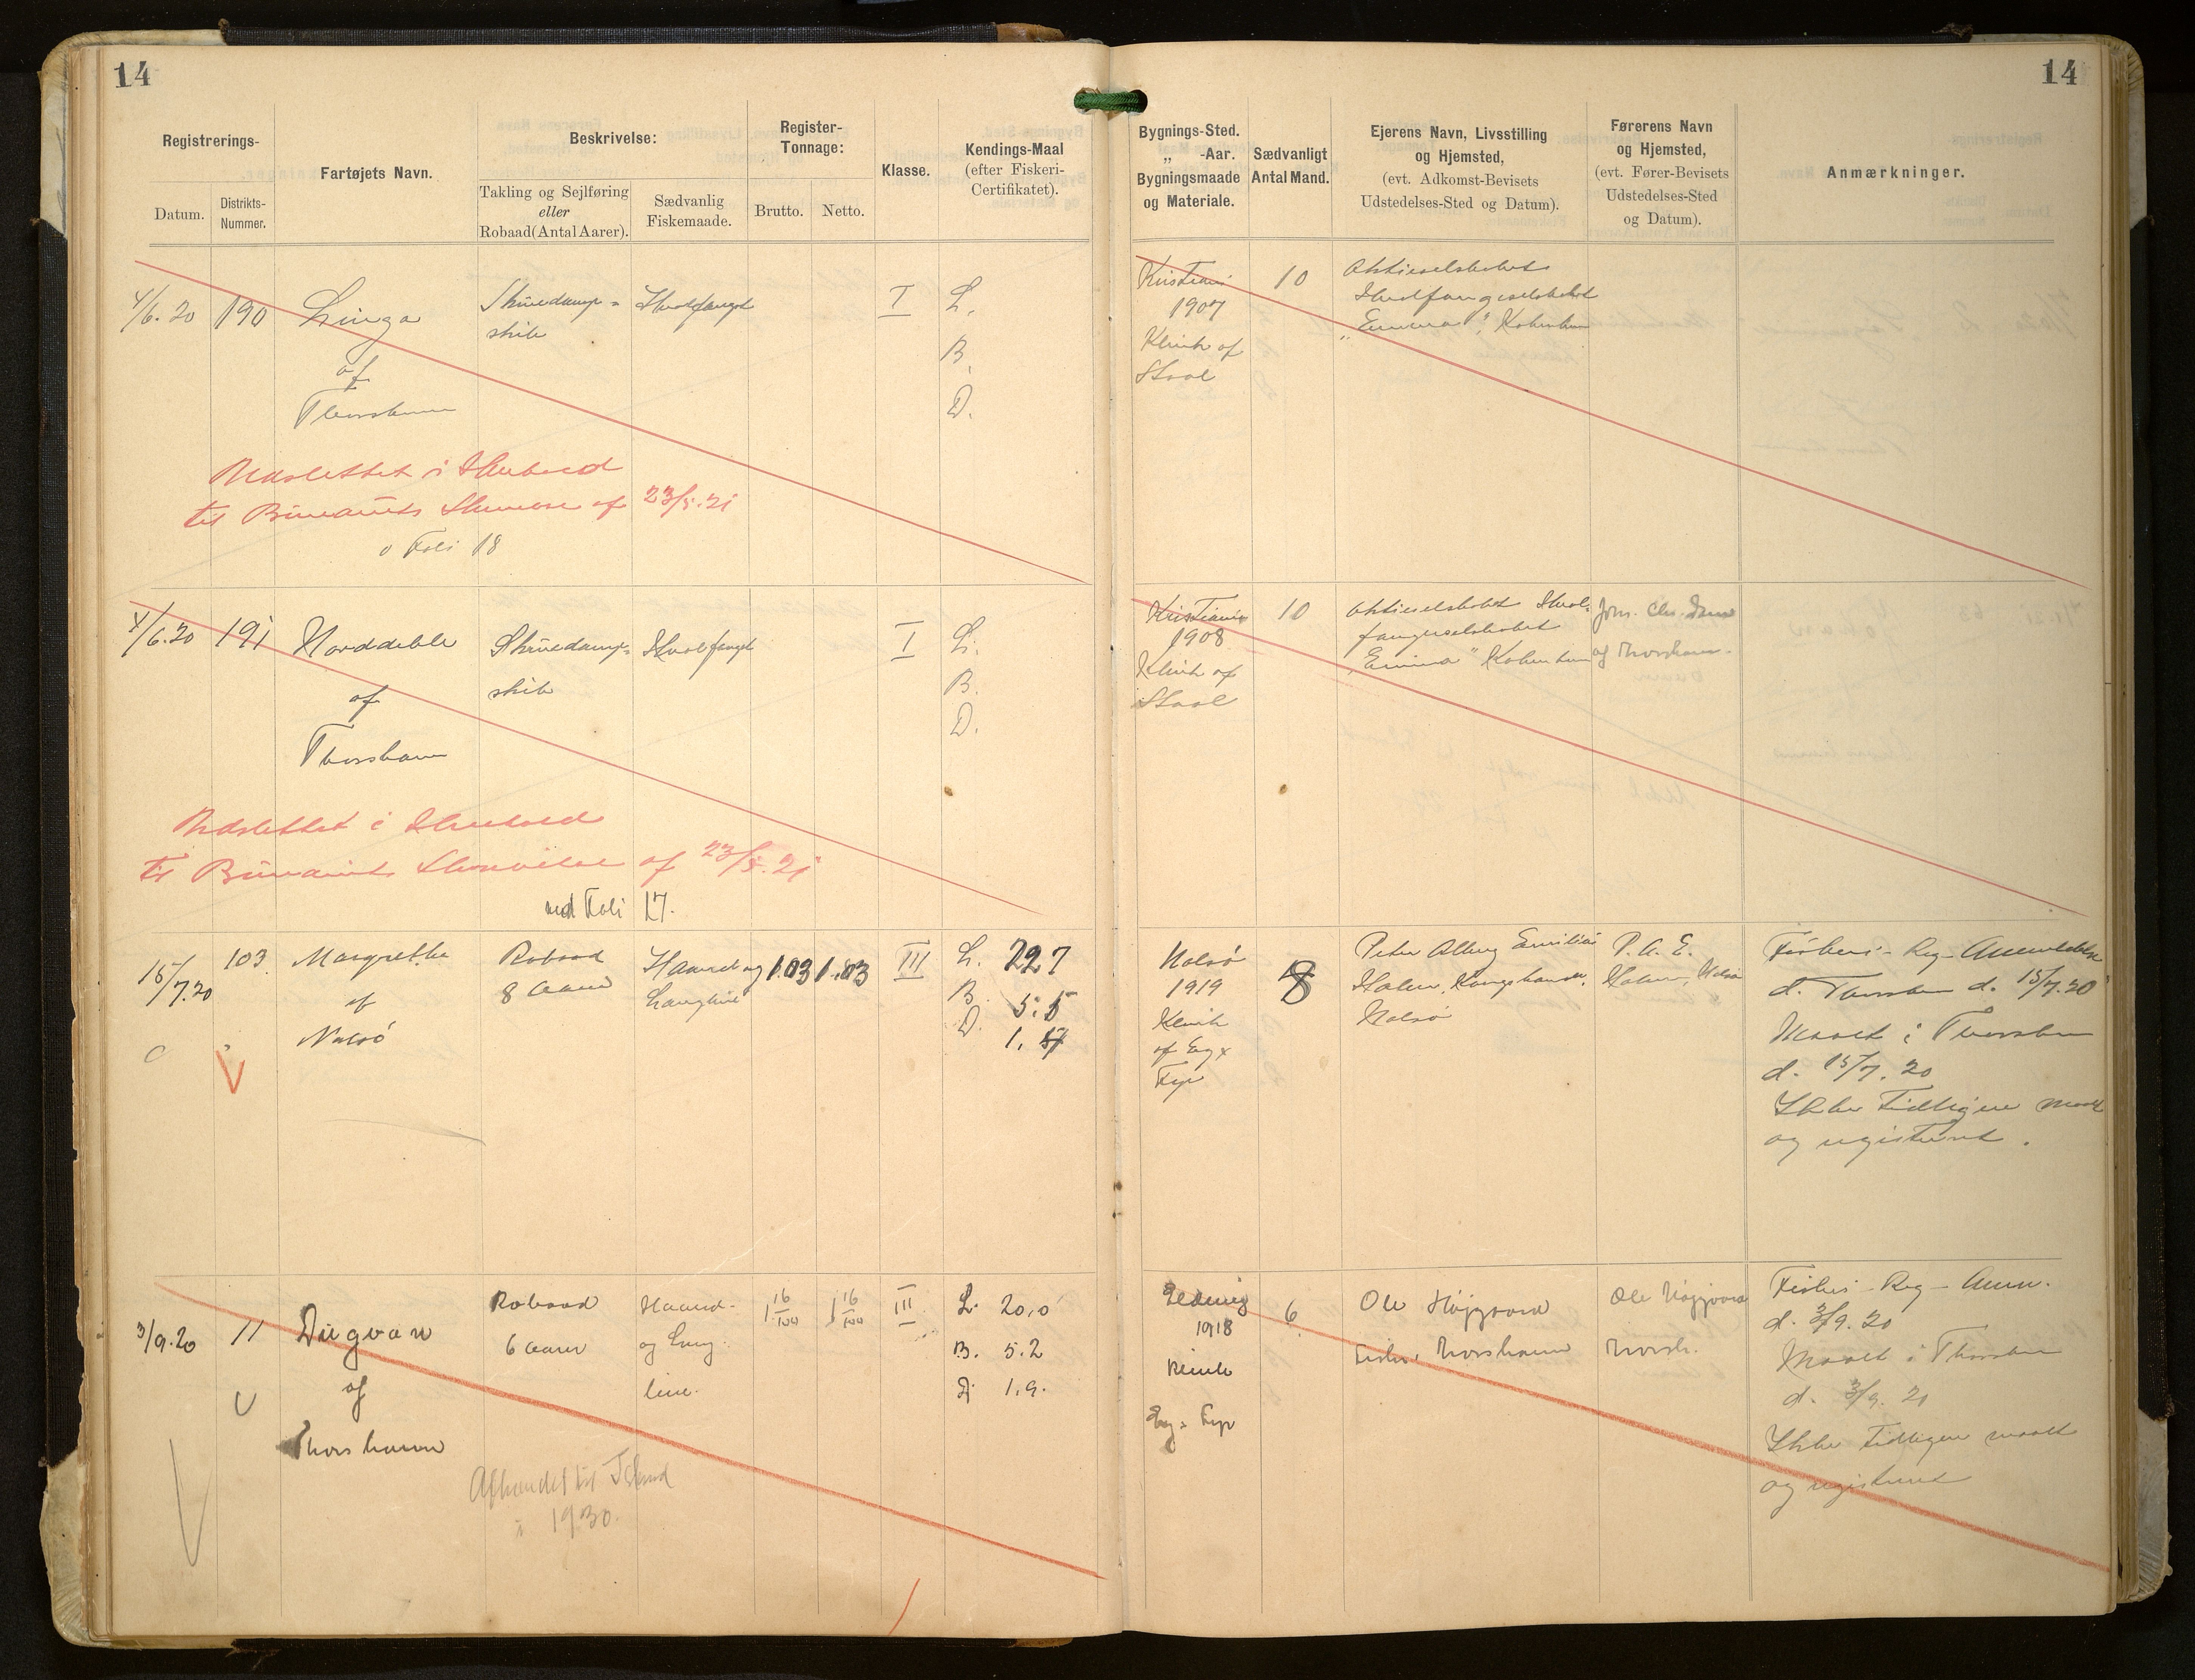 14
14
Registrerings-
Datum.
Distrikts-
Nummer.
Fartøjets Navn.
Beskrivelse:
Takling og Sejlføring
eller
Robaad (Antal Aarer).
Sædvanlig
Fiskemaade.
Register-
Tonnage:
Brutto.
Netto.
Klasse.
Kendings-Maal
(efter Fiskeri-
Certifikatet).
Bygnings-Sted.
„ -Aar.
Bygningsmaade
og Materiale.
Sædvanligt
Antal Mand.
Ejerens Navn, Livsstilling
og Hjemsted,
(evt. Adkomst-Bevisets
Udstedelses-Sted og Datum).
Førerens Navn
og Hjemsted,
(evt. Fører-Bevisets
Udstedelses-Sted
og Datum).
Anmærkninger.
4/6.20
190
Linga
af
Thorshavn
Skruedamp-
skib
Hvalfangst
I
L.
B.
D.
Kristiania
1907
Klink af
Staal
10
Aktieselskabet
Hvalfangerselskabet
"Emma", København
Udslettet i Henhold
til
af 23/5.21
Foli 18
4/6.20
191
Norddeble
af
Thorshavn
Skruedamp-
skib
Hvalfangst
I
L.
B.
D.
Kristiania
1908
Klink af
Staal
10
Aktieselskabet Hval-
fangerselskabet
"Emma" København
Joh. Chr.
af Thorshavn.
Udslettet i Henhold
til
af 23/5.21
ved Foli 17.
15/7.20
103
Margrethe
af
Nolsø
Robaad
8 Aarer
Haand og
Langline
1.03
1.03
III
L. 22 7
B. 5.5
D. 1.
Nolsø
1919
Klink
af Eg x
Fyr
8
Peter Alberg Emilius
Nolsø
P. A. E.
Nolsø
Fiskeri-Reg-Anmeldelse
d. Thorshavn d. 15/7.20
Maalt i Thorshavn
d. 15/7.20
Ikke Tidligere maalt
og registreret.
3/9.20
11
Dúgvan
af
Thorshavn
Robaad
6 Aarer
Haand-
og Lang-
line.
1 16/100
1 16/100
III
L. 20,0
B. 5.2
D. 1.9.
1918
Klink
Eg = Fyr
6
Ole Højgaard
Fisker, Thorshavn
Ole Højgaard
Thorsh.
Fiskeri-Reg-Anm.
d. 3/9.20
Maalt i Thorshavn
d. 3/9.20
Ikke Tidligere maalt
og registreret
Afhændet til Island
i 1930.